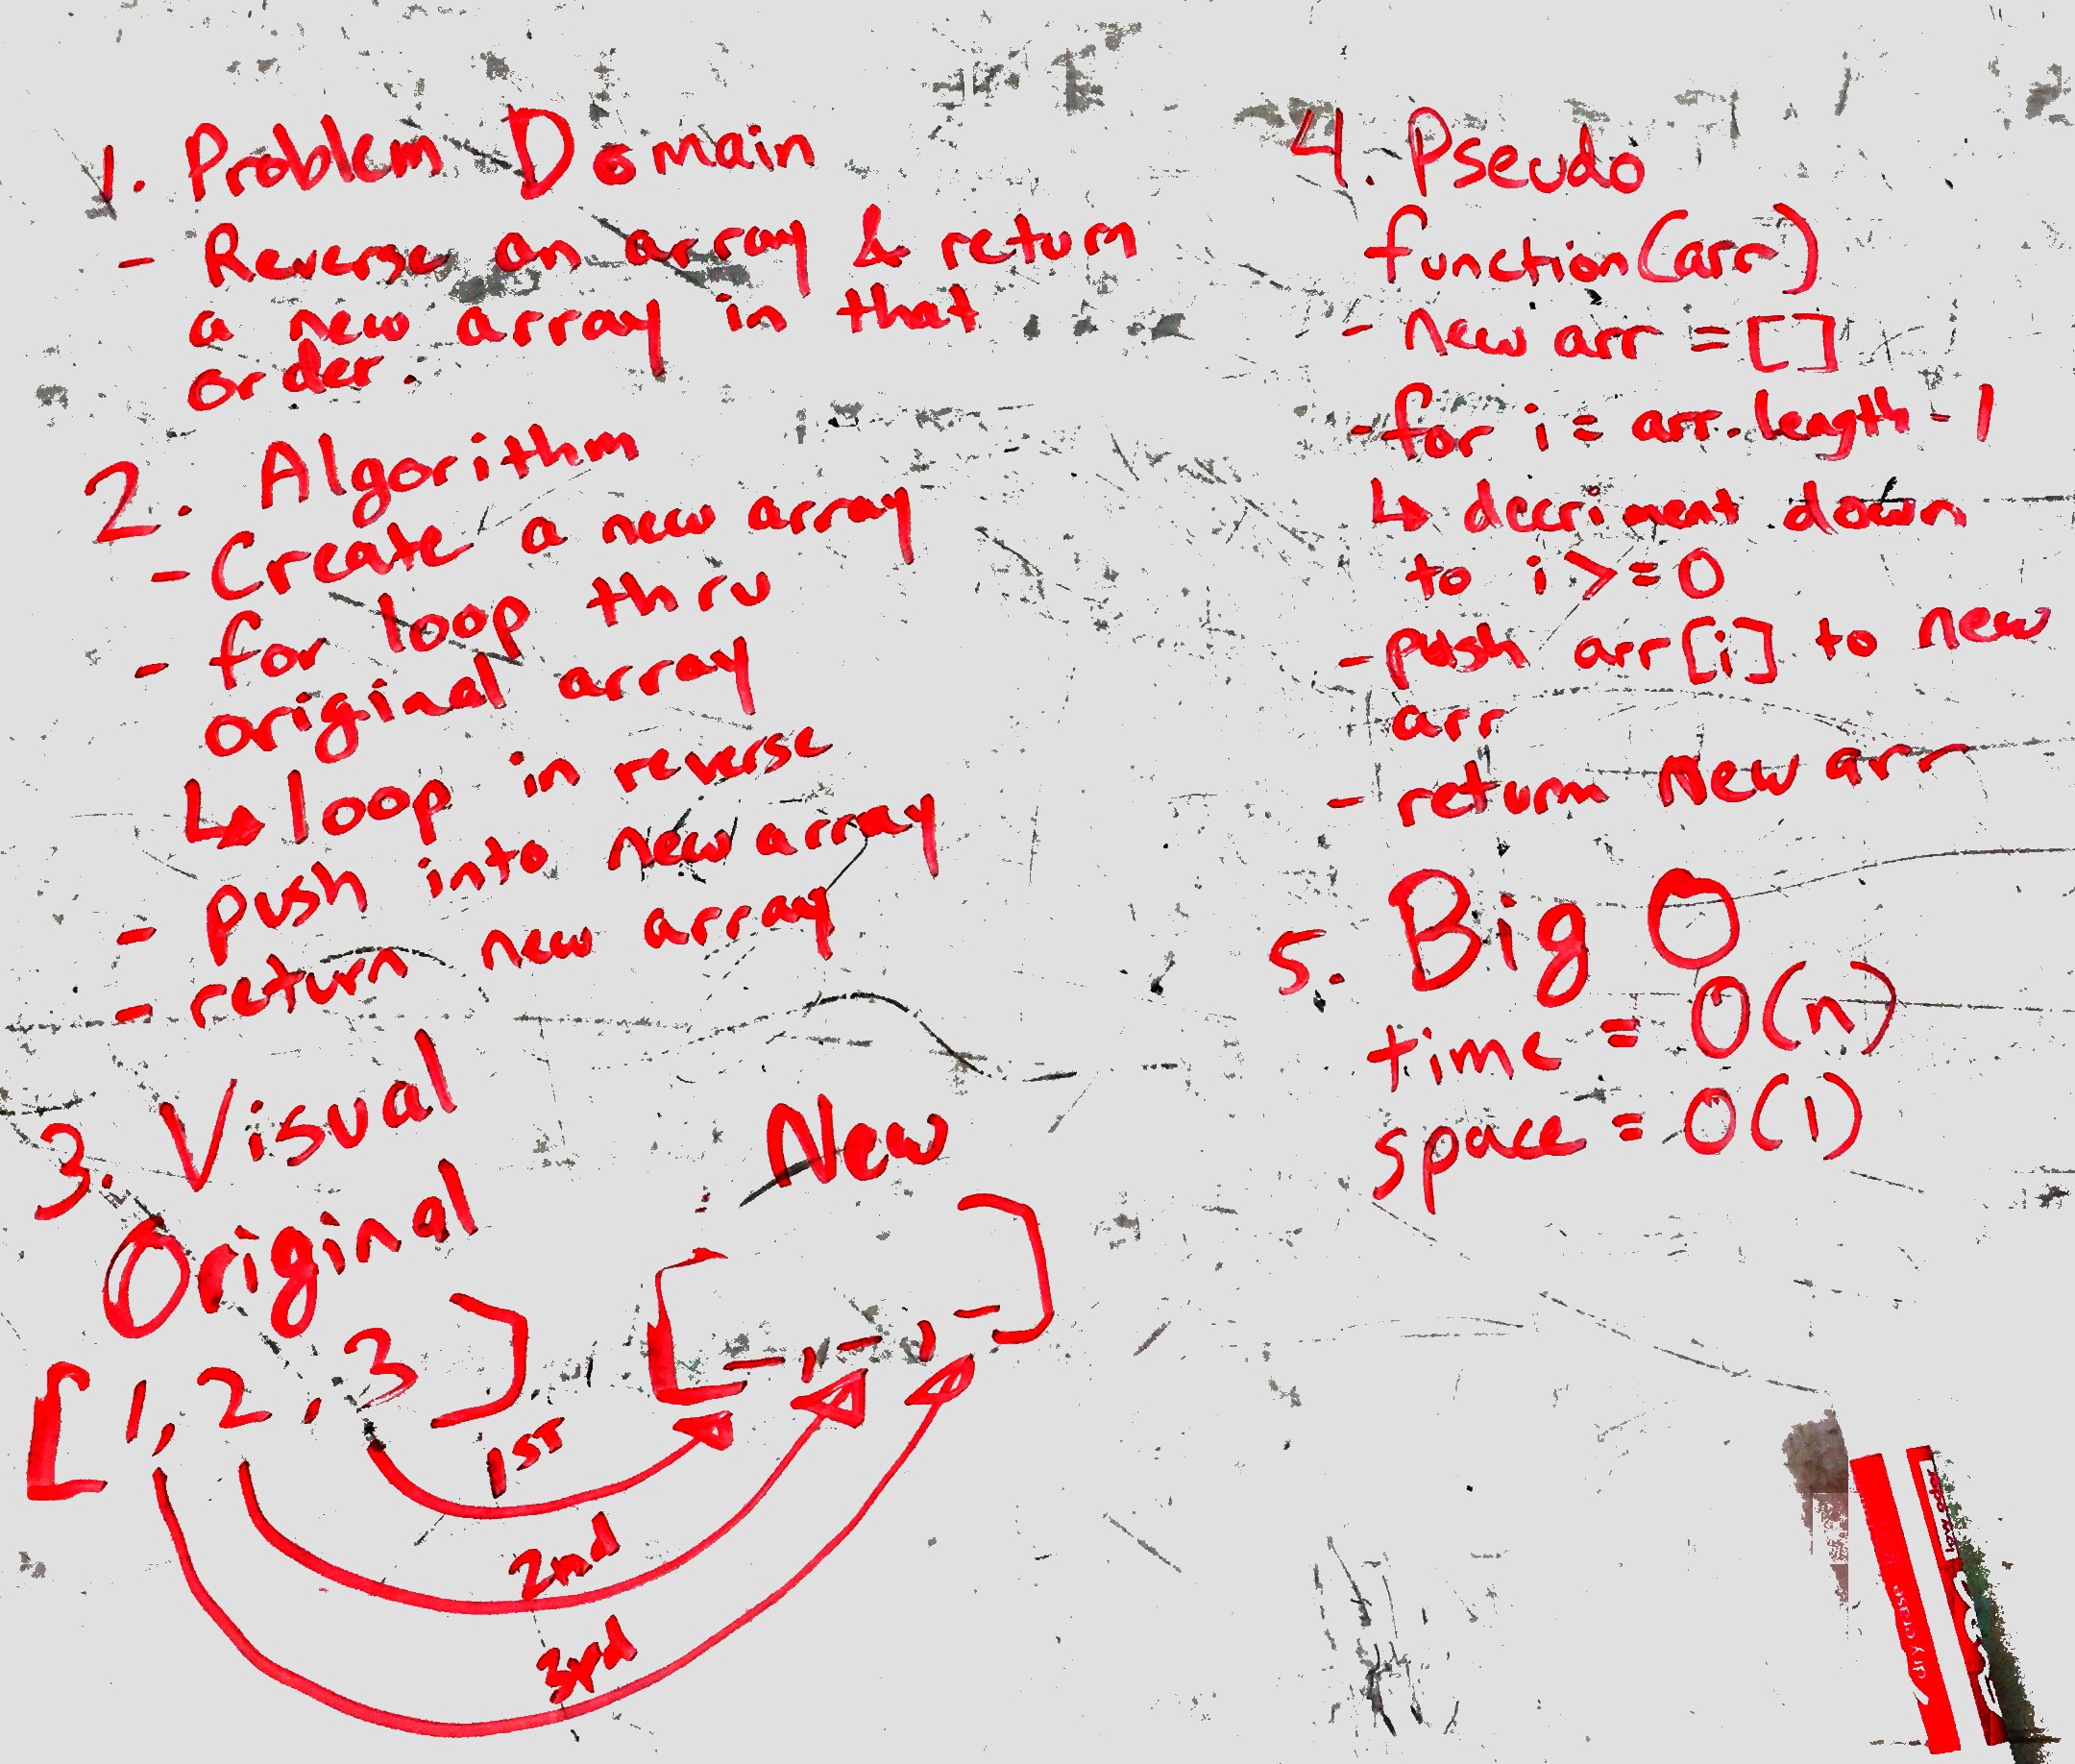 1. Problem Domain
- Reverse an array & return
a new array in that
order.
2. Algorithm
- Create a new array
- for loop thru
original array
↳ loop in reverse
- push into new array
- return new array
3. Visual
Original New
[1, 2, 3] [_, _, _]
1ST
2nd
3rd
4. Pseudo
function(arr)
- new arr = []
- for i = arr.length - 1
↳ decriment down
to i >= 0
- push arr[i] to new
arr
- return New arr
5. Big O
time = O(n)
space = O(1)
low odor
dry erase